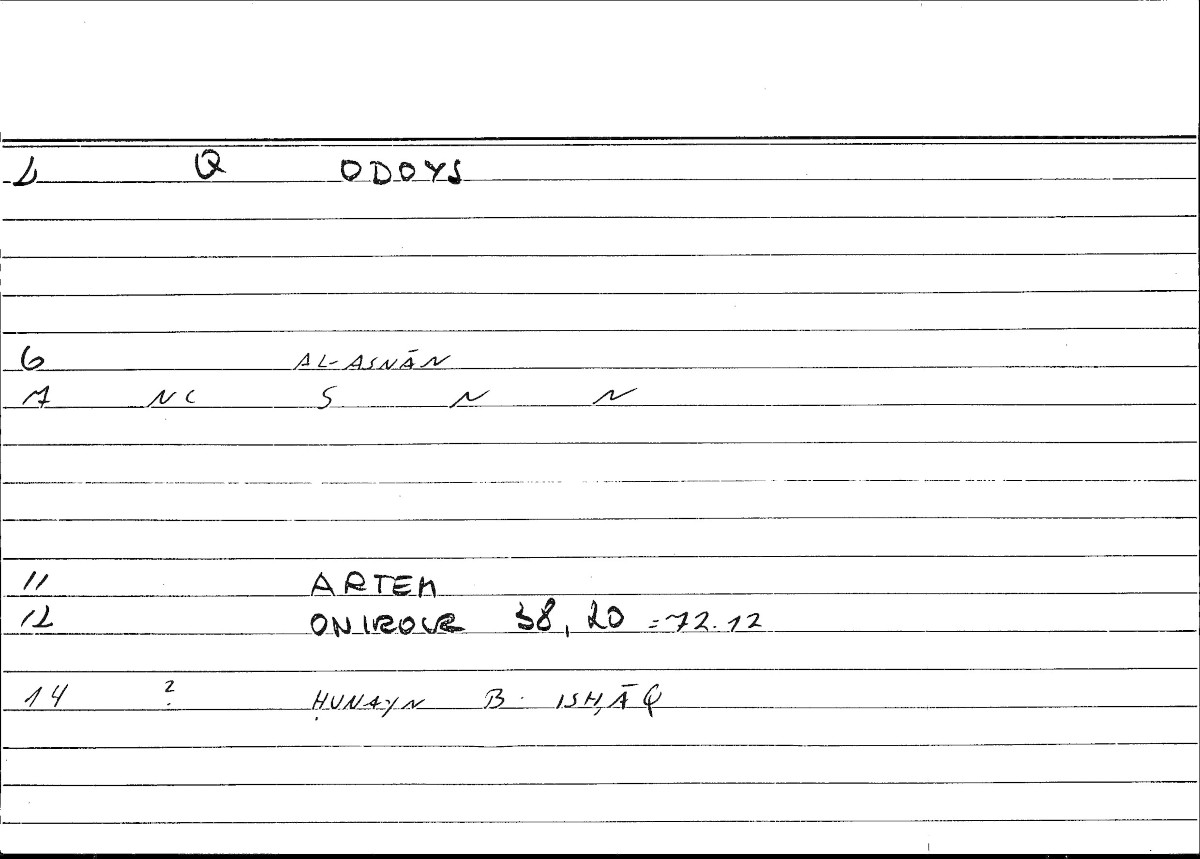 1 Q ODOYS
6 AL-ASNĀN
7 NC S N N
11 ARTEM
12 ONIROCR 38,20 =72.12
14 ? ḤUNAYN B. ISḤĀQ